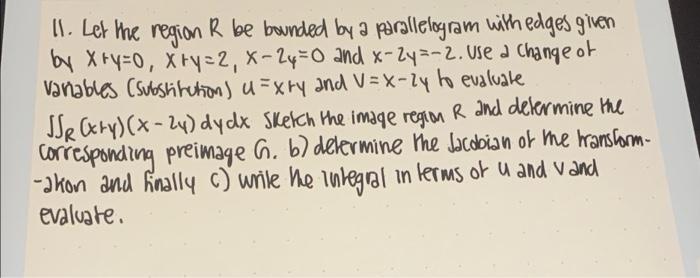 11. Let the region R be bounded by a parallelogram with edges given
by x+y=0, x+y=2, x-2y=0 and x-2y=-2. Use a change of
variables (substitution) u=x+y and v=x-2y to evaluate
∫∫R (x+y)(x-2y) dydx Sketch the image region R and determine the
corresponding preimage G. b) determine the Jacobian of the transform-
-ation and finally c) write the integral in terms of u and v and
evaluate.